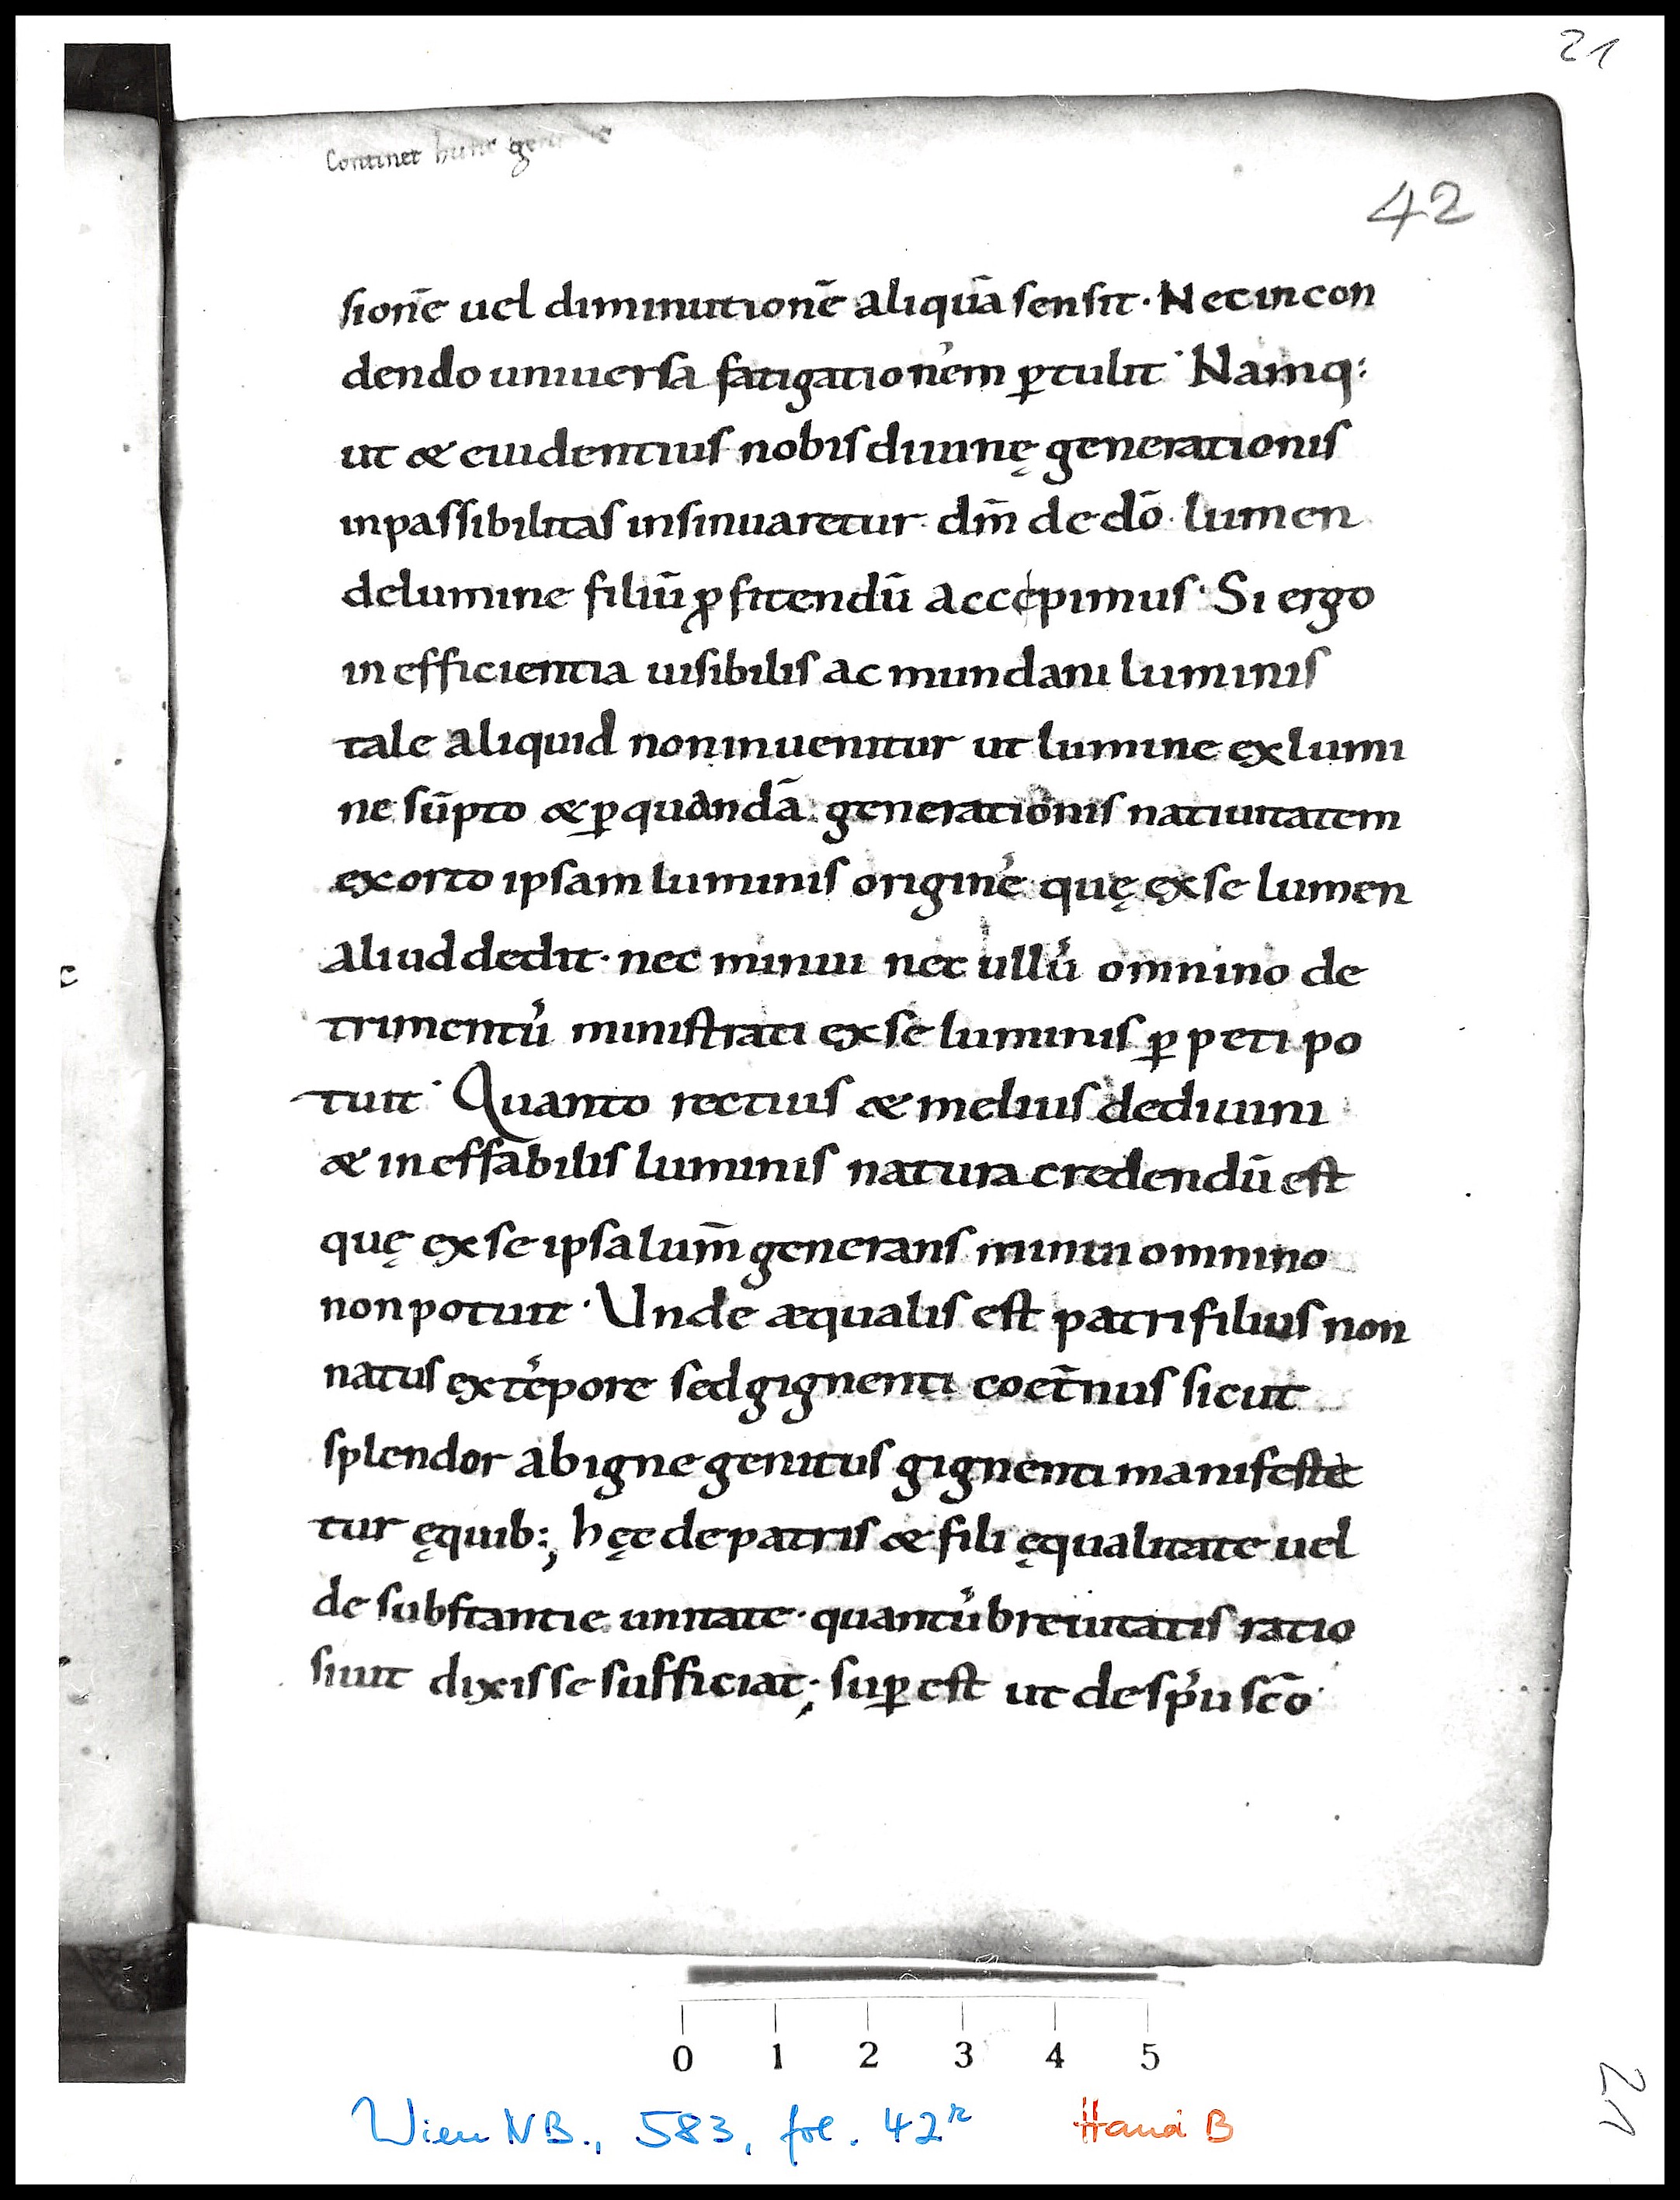 21
Continet hunc
42
sionē uel diminutionē aliquā sensit · Nec in con
dendo uniuersa fatigationem ꝑtulit · Namq:
ut & euidentius nobis diuinę generationis
inpassibilitas insinuaretur · dm̄ de dō · lumen
de lumine filiū ꝓfitendū accepimus · Si ergo
in efficientia uisibilis ac mundani luminis
tale aliquid non inuenitur ut lumine ęx lumi
ne sūpto & ꝑ quandā generationis natiuitatem
ęxorto ipsam luminis originē quę ęx se lumen
aliud dedit · nec minui nec ullū omnino de
trimentū ministrati ęx se luminis ꝑpeti po
tuit · Quanto rectius & melius de diuini
& ineffabilis luminis natura credendū est
quę ęx se ipsa lum̄ generans minui omnino
non potuit · Unde æqualis est patri filius non
natus ęx tēpore sed gignenti coet̄nus sicut
splendor ab igne genitus gignenti manifeste
tur ęquib:; hęc de patris & fili ęqualitate uel
de substantie unitate · quantū breuitatis ratio
siuit dixisse sufficiat; suꝑest ut de sp̄u scō
0 1 2 3 4 5
Wien NB., 583, fol. 42r Hand B
21